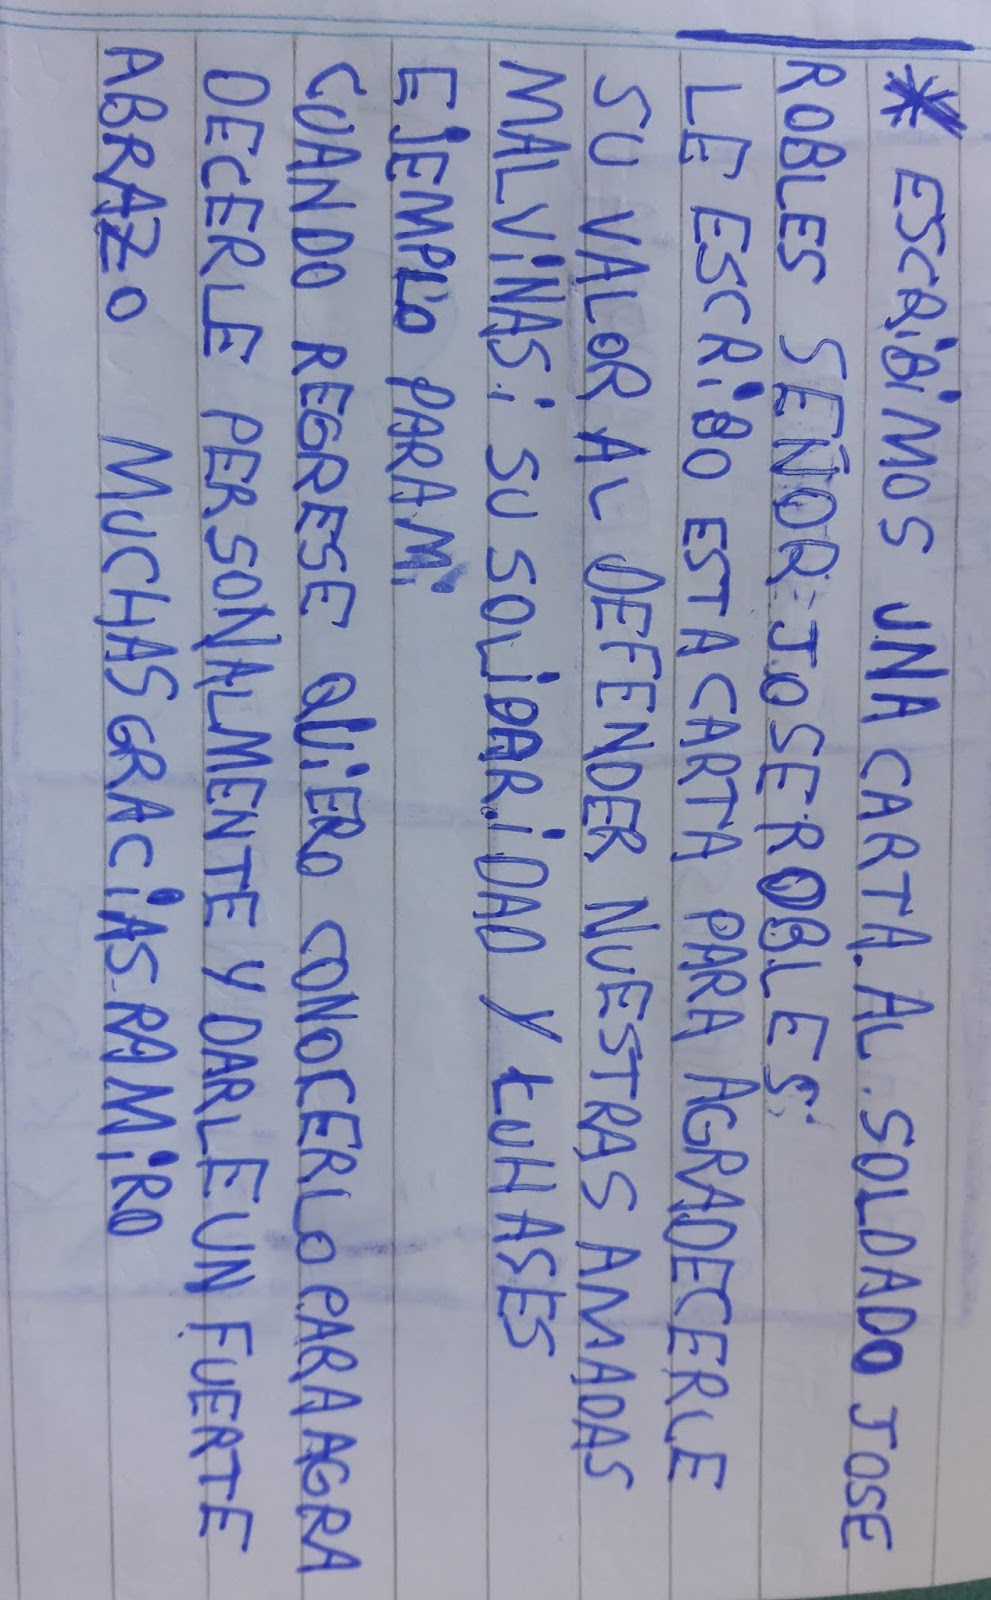 * ESCRIBIMOS UNA CARTA. AL. SOLDADO JOSE
ROBLES SEÑOR: JOSE ROBLES:
LE ESCRIBO ESTA CARTA PARA AGRADECERLE
SU VALOR AL DEFENDER NUESTRAS AMADAS
MALVINAS; SU SOLIDARIDAD Y LUH ASES
EJEMPLO PARA MI
CUANDO REGRESE QUIERO CONOCERLO PARA AGRA
DECERLE PERSONALMENTE Y DARLE UN FUERTE
ABRAZO MUCHAS GRACIAS RAMIRO